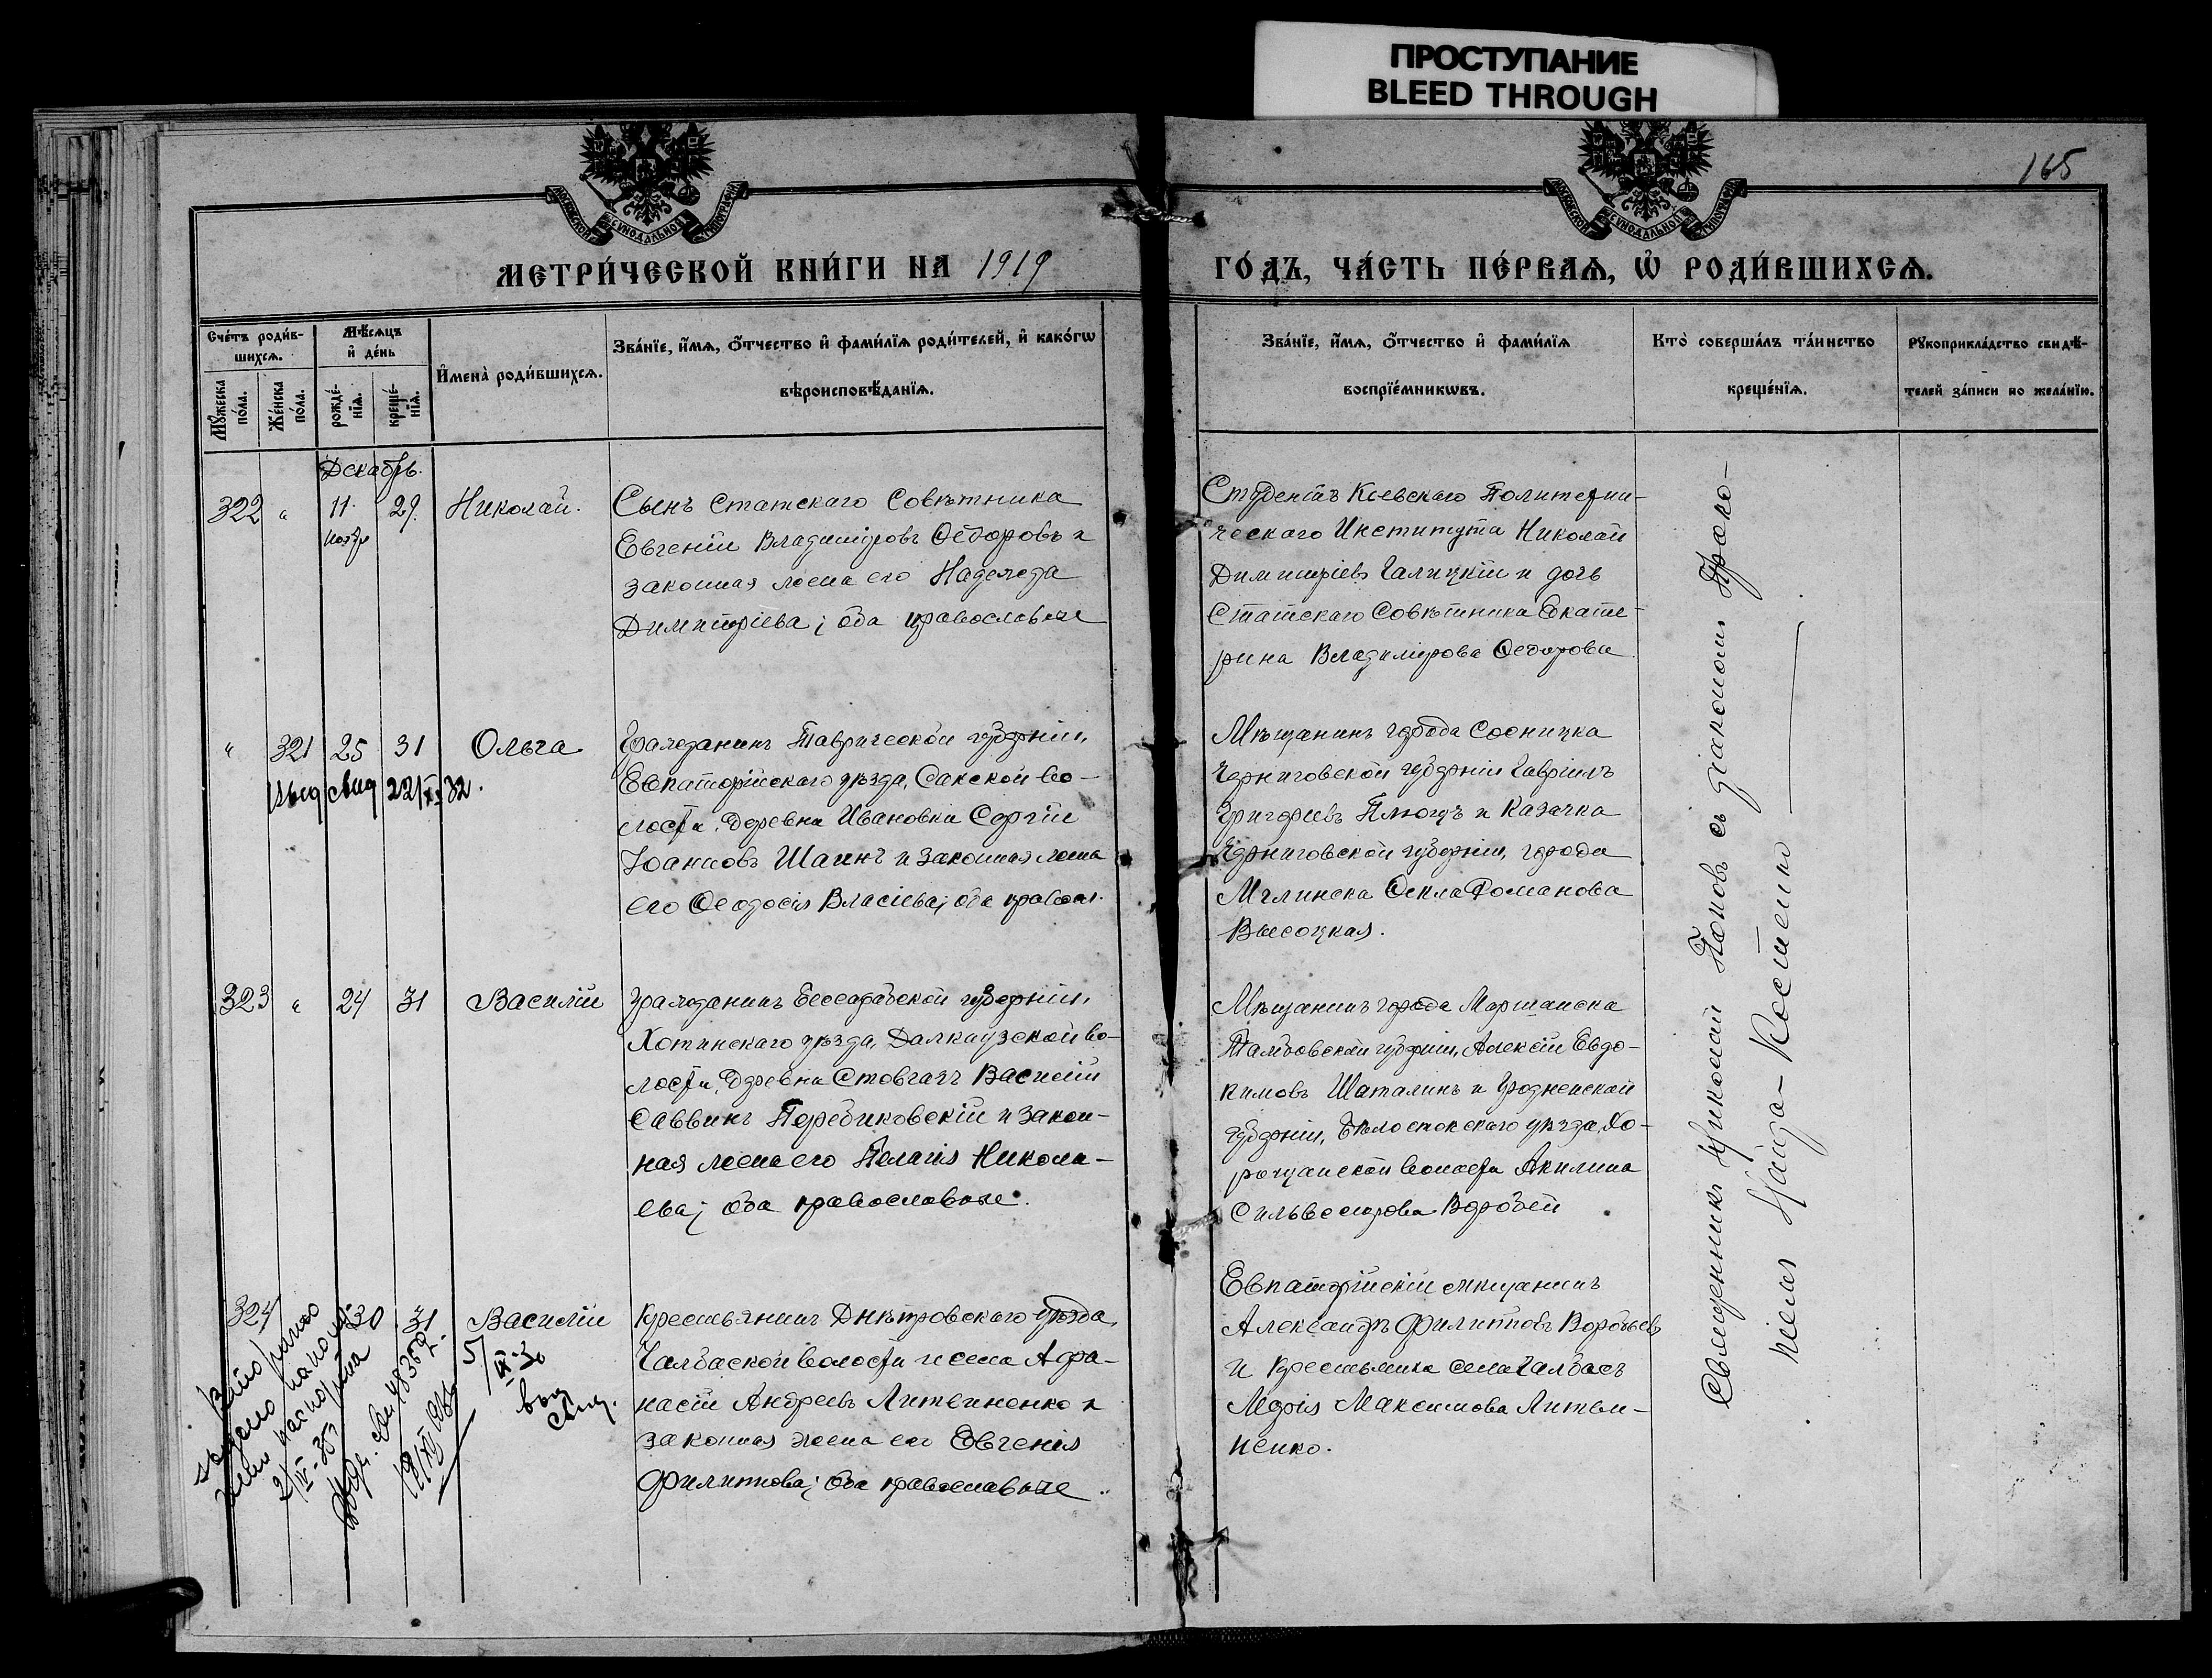 ПРОСТУПАНИЕ
BLEED THROUGH
165
МОСКОВСКОЙ СѴНОДАЛЬНОЙ ТИПОГРАФІИ
МОСКОВСКОЙ СѴНОДАЛЬНОЙ ТИПОГРАФІИ
МЕТРИ́ЧЕСКОЙ КНИ́ГИ НА 1919
ГО́ДЪ, ЧА́СТЬ ПЕ́РВАѦ, Ѡ҆ РОДИ́ВШИХСѦ.
Сче́тъ роди́в-
шихсѧ.
Мꙋ́жеска
по́ла.
Же́нска
по́ла.
Мѣ́сѧцъ
и҆ де́нь
рожде́-
нїѧ.
креще́-
нїѧ.
И҆мена̀ роди́вшихсѧ.
Зва́нїе, и҆́мѧ, ѻ҆́тчество и҆ фами́лїѧ роди́телей, и҆ како́гѡ
вѣроисповѣ́данїѧ.
Зва́нїе, и҆́мѧ, ѻ҆́тчество и҆ фами́лїѧ
воспрїе́мникѡвъ.
Кто̀ соверша́лъ та́инство
креще́нїѧ.
Рꙋкоприкла́дство свидѣ́-
телей за́писи по жела́нїю.
Декабрь.
322 " 11. 29. Николай.
Ноябр
Сынъ Статскаго Совѣтника
Евгеній Владиміровъ Ѳедоровъ и
законная жена его Надежда
Димитріева; оба православные
Студентъ Кіевскаго Политехни-
ческаго Института Николай
Димитріевъ Галицкій и дочь
Статскаго Совѣтника Екате-
рина Владимірова Ѳедорова
" 321 25 31 Ольга
Выд свид 22/XI 32.
Гражданинъ Таврической губерніи,
Евпаторійскаго уѣзда, Сакской во-
лости, деревни Ивановки Сергій
Іоанновъ Шаинъ и законная жена
его Ѳеодосія Власіева; оба правосл.
Мѣщанинъ города Сосницка
Черниговской губерніи Гавріилъ
Григорьевъ Плющъ и Казачка
Черниговской губерніи, города
Мглинска Ѳекла Романова
Высоцкая.
323 " 24 31 Василій
Гражданинъ Бессарабской губерніи,
Хотинскаго уѣзда, Далкаузской во-
лости, деревни Стовгачъ Василій
Саввинъ Перебиковскій и закон-
ная жена его Пелагія Никола-
ева; оба православные.
Мѣщанинъ города Моршанска
Тамбовской губерніи, Алексій Евдо-
кимовъ Шаталинъ и Гродненской
губерніи, Бѣлостокскаго уѣзда, Хо-
рощанской волости Акилина
Сильвестрова Воробей
324 30 31 Василій
5/IX-3
выд
свид.
2/IV-35
Крестьянинъ Днѣпровскаго уѣзда,
Чалбаской волости и села Афа-
насій Андреевъ Литвиненко и
законная жена его Евгенія
Филиппова; оба православные
Евпаторійскій мѣщанинъ
Александръ Филипповъ Воробьевъ
и крестьянка села Чалбасъ
Марія Максимова Литви-
ненко.
Священникъ Николай Поповъ съ діакономъ Проко-
піемъ Найда-Костенко